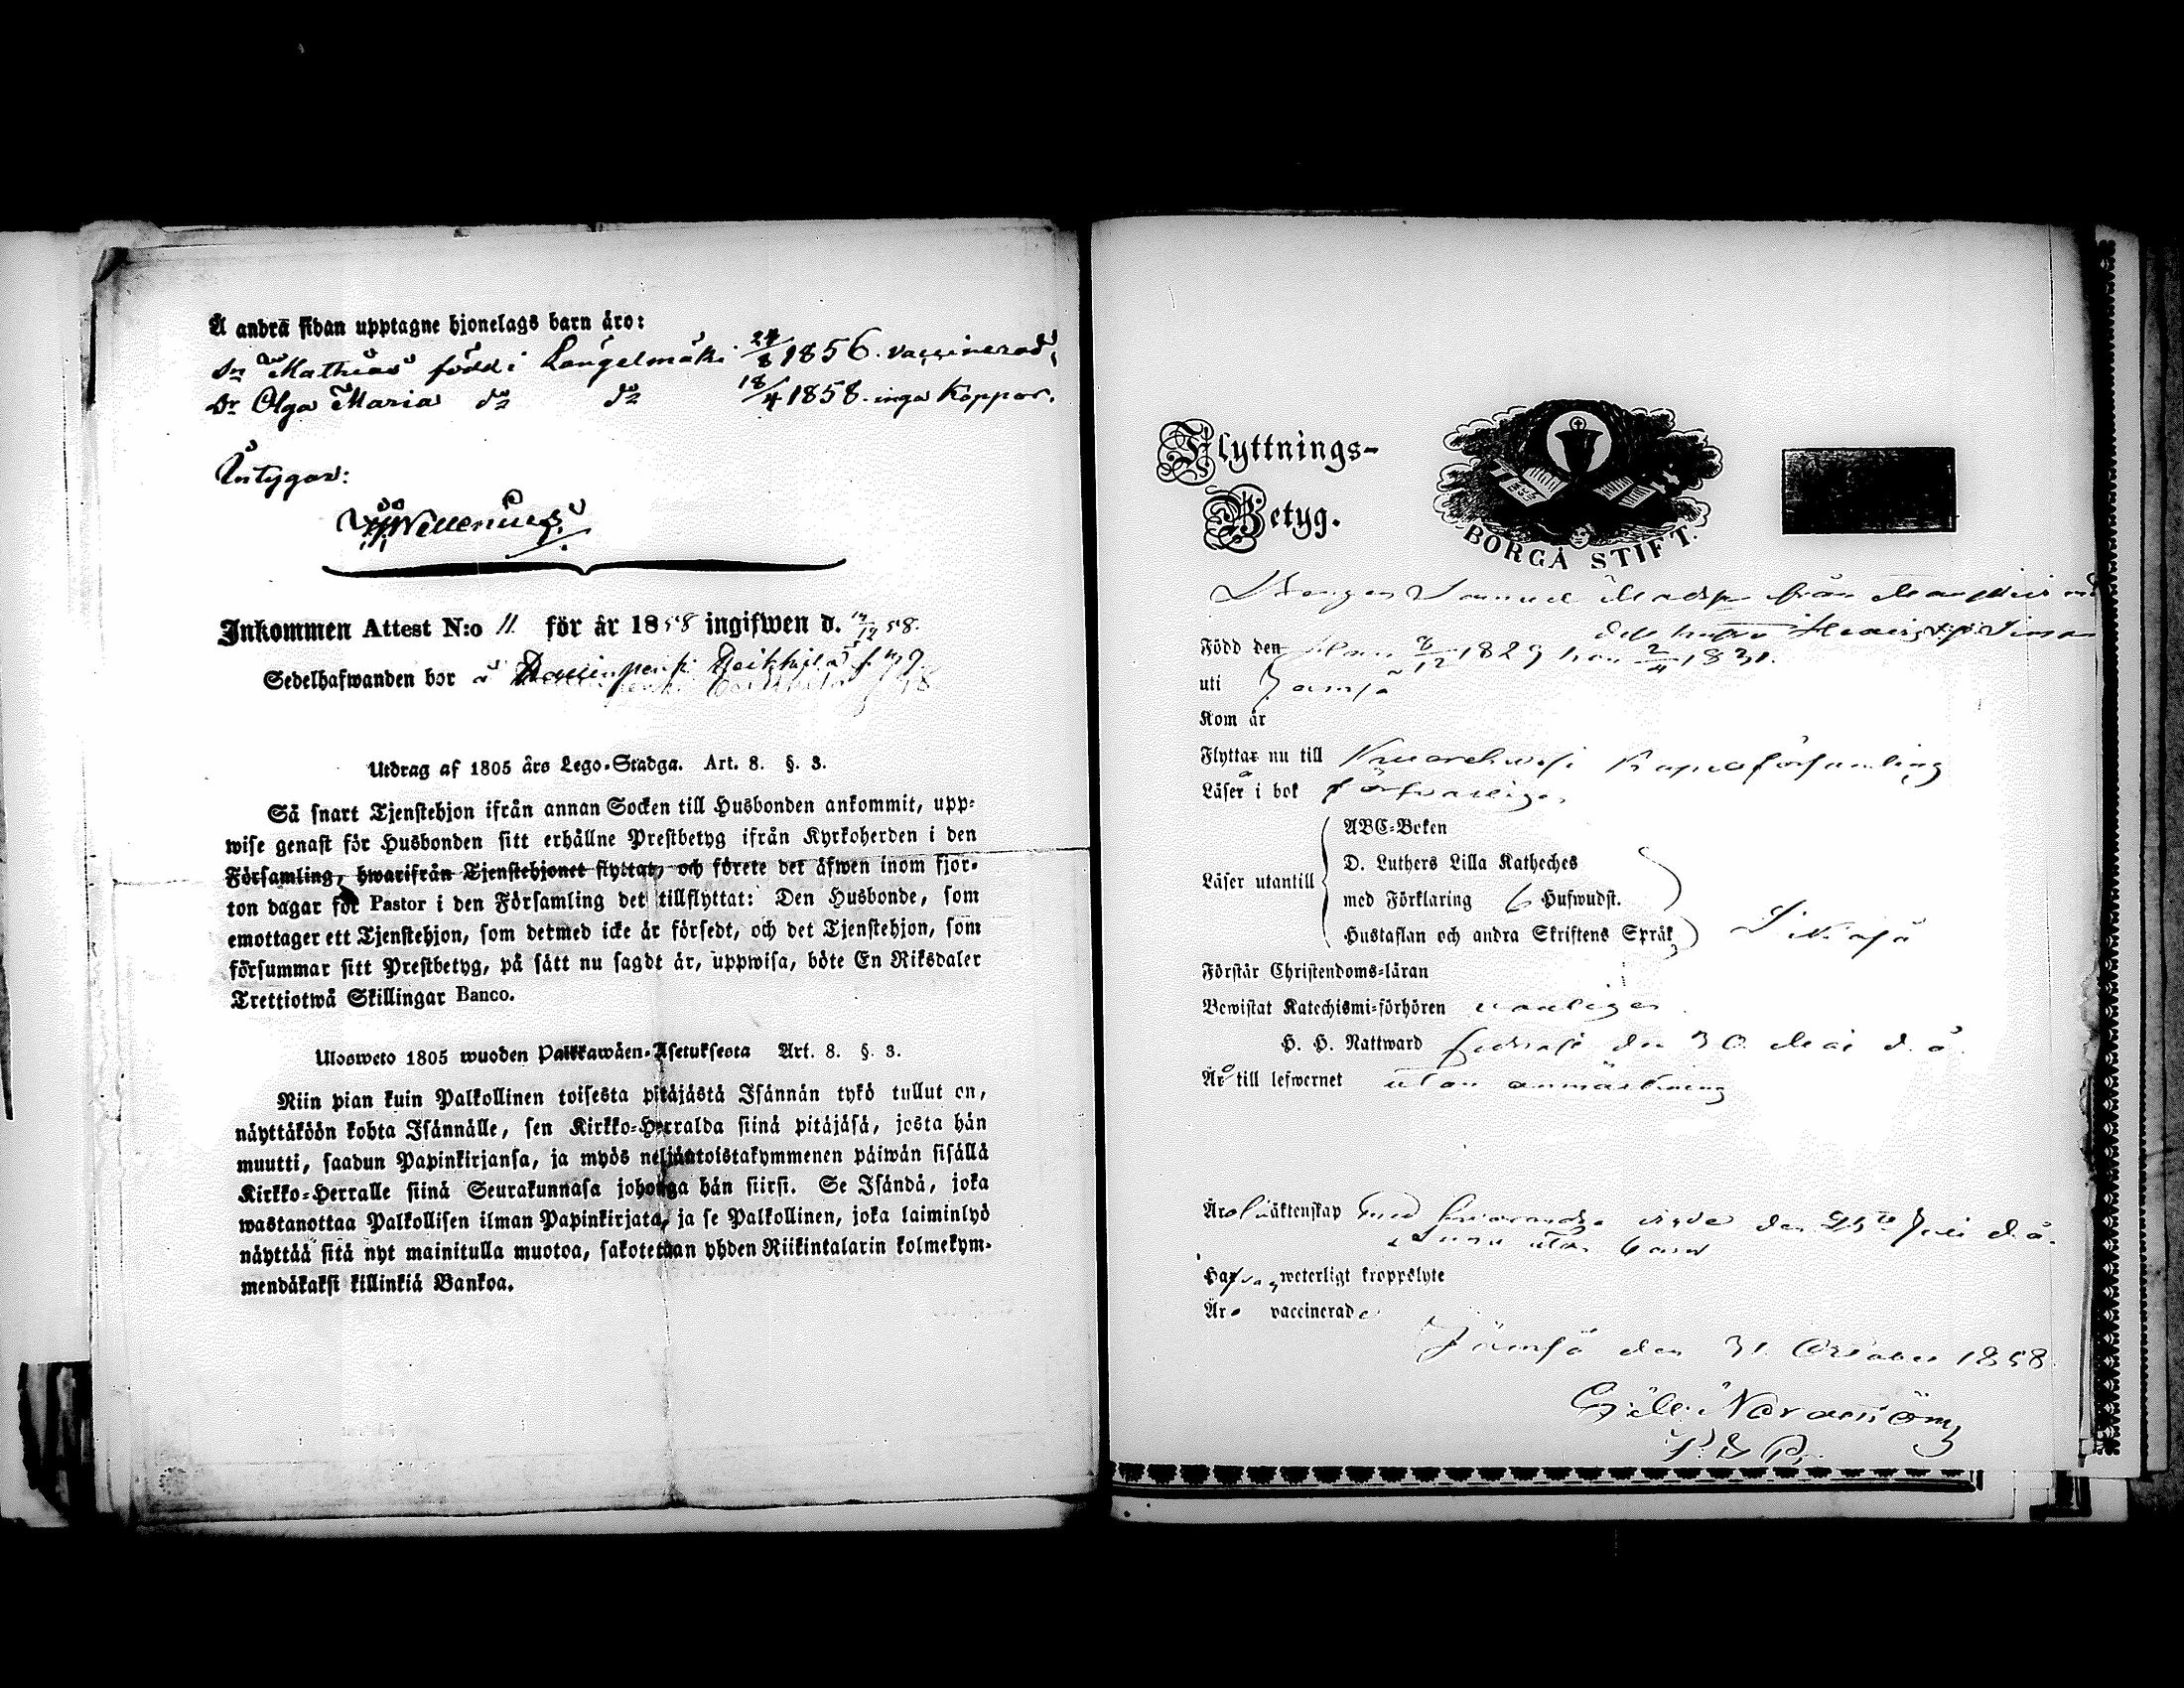 Å andra sidan upptagne hjonelags barn äro:
Sn Mathias född i Längelmäki 24/8 1856. vaccinerad,
Dr Olga Maria do do 18/4 1858. inga Koppor.
Intygar:
Inkommen Attest N:o 11. för år 1858 ingifwen d. /12 58.
Sedelhafwanden bor å
Utdrag af 1805 års Lego-Stadga. Art. 8. §. 3.
Så snart Tjenstehjon ifrån annan Socken till Husbonden ankommit, upp-
wise genast för Husbonden sitt erhållne Prestbetyg ifrån Kyrkoherden i den
Församling, hwarifrån Tjenstehjonet flyttat, och förete det äfwen inom fjor-
ton dagar för Pastor i den Församling det tillflyttat: Den Husbonde, som
emottager ett Tjenstehjon, som detmed icke är försedt, och det Tjenstehjon, som
försummar sitt Prestbetyg, på sätt nu sagdt är, uppwisa, böte En Riksdaler
Trettiotwå Skillingar Banco.
Ulosweto 1805 wuoden Palkkawäen-Asetuksesta Art. 8. §. 3.
Niin pian kuin Palkollinen toisesta pitäjästä Isännän tykö tullut on,
näyttäköön kohta Isännälle, sen Kirkko-Herralda siinä pitäjäsä, josta hän
muutti, saadun Papinkirjansa, ja myös neljäntoistakymmenen päiwän sisällä
Kirkko-Herralle siinä Seurakunnasa johonga hän siirsi. Se Isändä, joka
wastanottaa Palkollisen ilman Papinkirjata, ja se Palkollinen, joka laiminlyö
näyttää sitä nyt mainitulla muotoa, sakotetaan yhden Riikintalarin kolmekym-
mendäkaksi killinkiä Bankoa.
Flyttnings-
Betyg.
BORGÅ STIFT.
Drengen Samuel Madsson från
Född den Han /12 1829 hon 2/4 1831.
uti Jämsä
Kom år
Flyttar nu till Kuorehwesi Kapellförsamling
Läser i bok försvarligen
Läser utantill
ABC-Boken
D. Luthers Lilla Katheches
med Förklaring 6 Hufwudst.
Hustaflan och andra Skriftens Språk
Förstår Christendoms-läran
Bewistat Katechismi-förhören vanligen
H. H. Nattward sednast den 30 Maj d. å.
Äro till lefwernet utan anmärkning
Äro i äktenskap med hwarandra den 25te Juli d. å.
utan barn
Hafva weterligt kroppslyte
Äro vaccinerade
Jämsä den 31 October 1858.